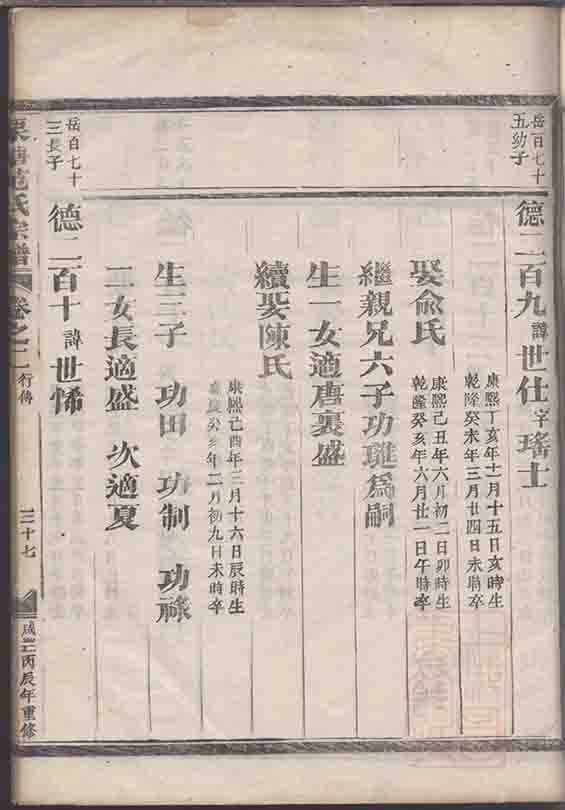 岳百七十
五幼子
德二百九 諱世仕 字瑤士
康熙丁亥年十一月十五日亥時生
乾隆癸未年三月廿四日未時卒
娶兪氏
康熙己丑年六月初二日卯時生
乾隆癸亥年六月廿一日午時卒
繼親兄六子功璡為嗣
生一女適唐襄盛
續娶陳氏
康熙己酉年三月十六日辰時生
癸亥年二月初九日未時卒
生三子 功田 功制 功祿
二女長適盛 次適夏
岳百七十
三長子
德二百十 諱世悕
范氏宗譜 卷之二 行傳 三十七 咸豐丙辰年重修